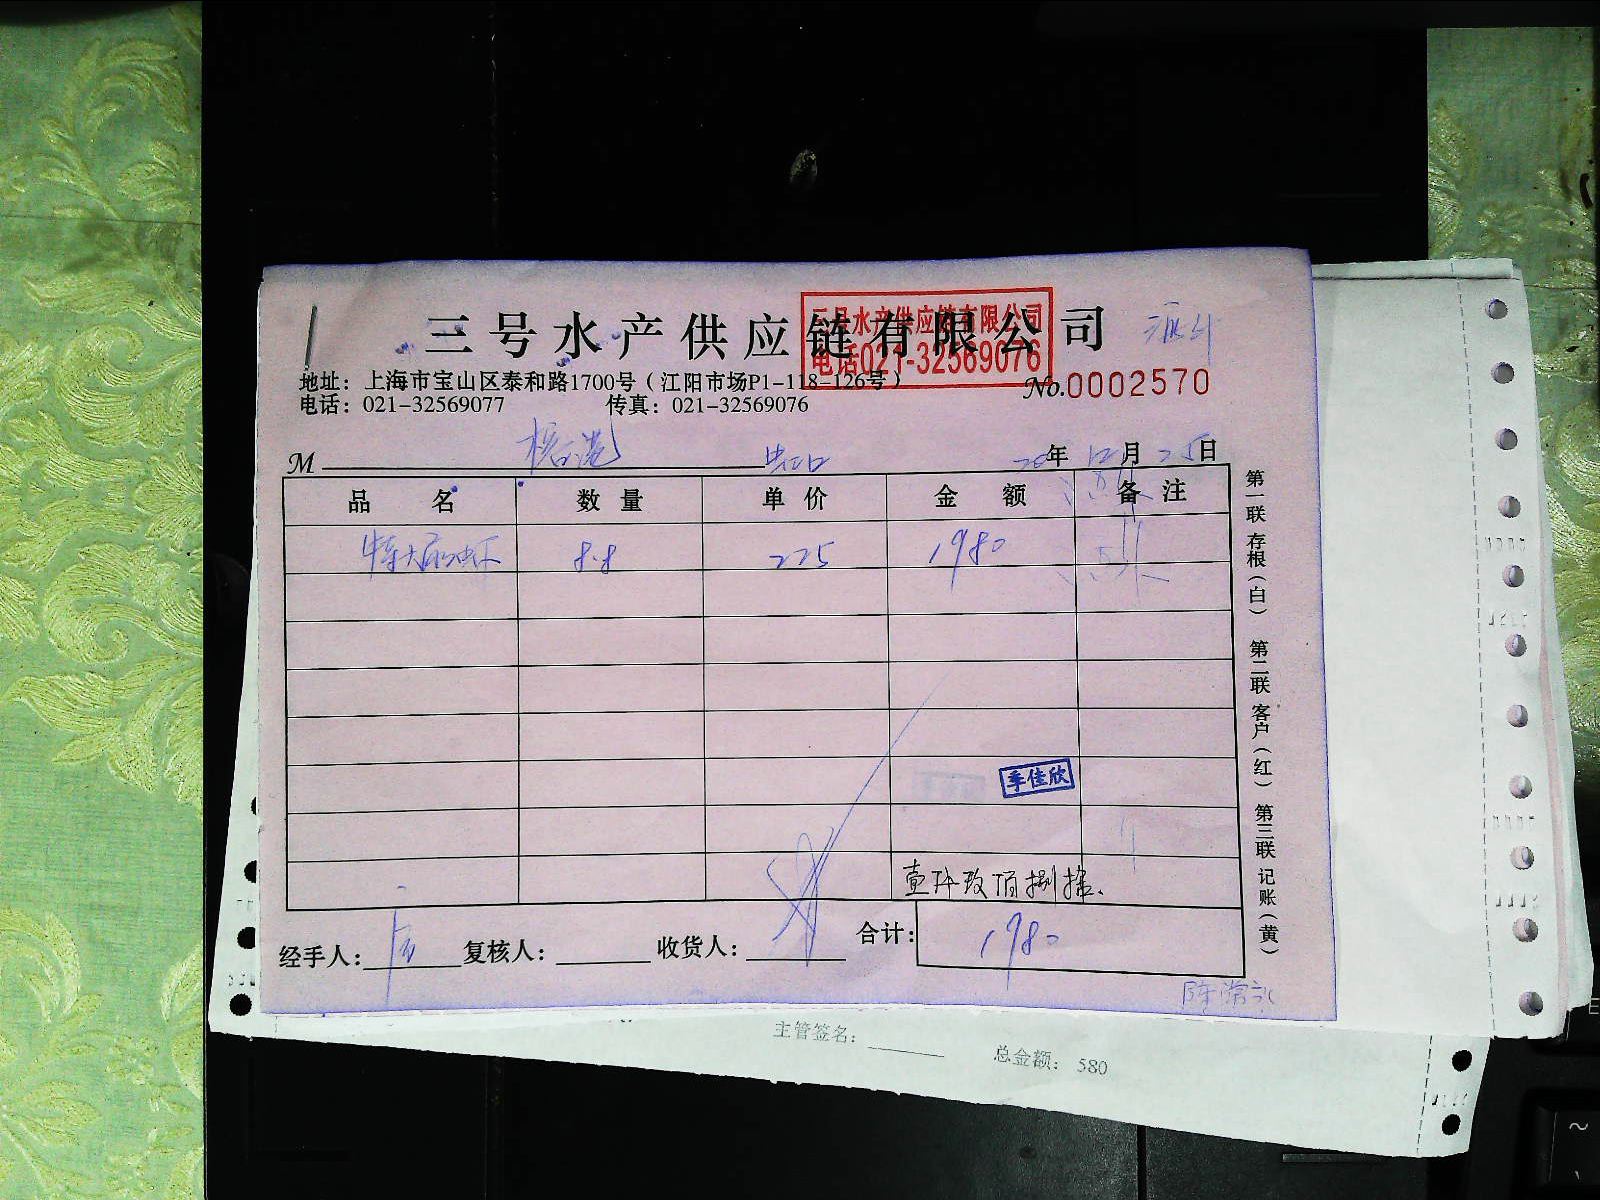 三号水产供应链有限公司
三号水产供应链有限公司
电话021-32569076
地址：上海市宝山区泰和路1700号（江阳市场P1-118-126号）
No.0002570
电话：021-32569077 传真：021-32569076
M 虹口 20年12月25日
品名 数量 单价 金额 备注
特大 虾 8.8 225 1980
季佳欣
壹仟玖佰捌拾
经手人： 复核人： 收货人： 合计： 1980
第一联 存根（白） 第二联 客户（红） 第三联 记账（黄）
主管签名：
总金额： 580